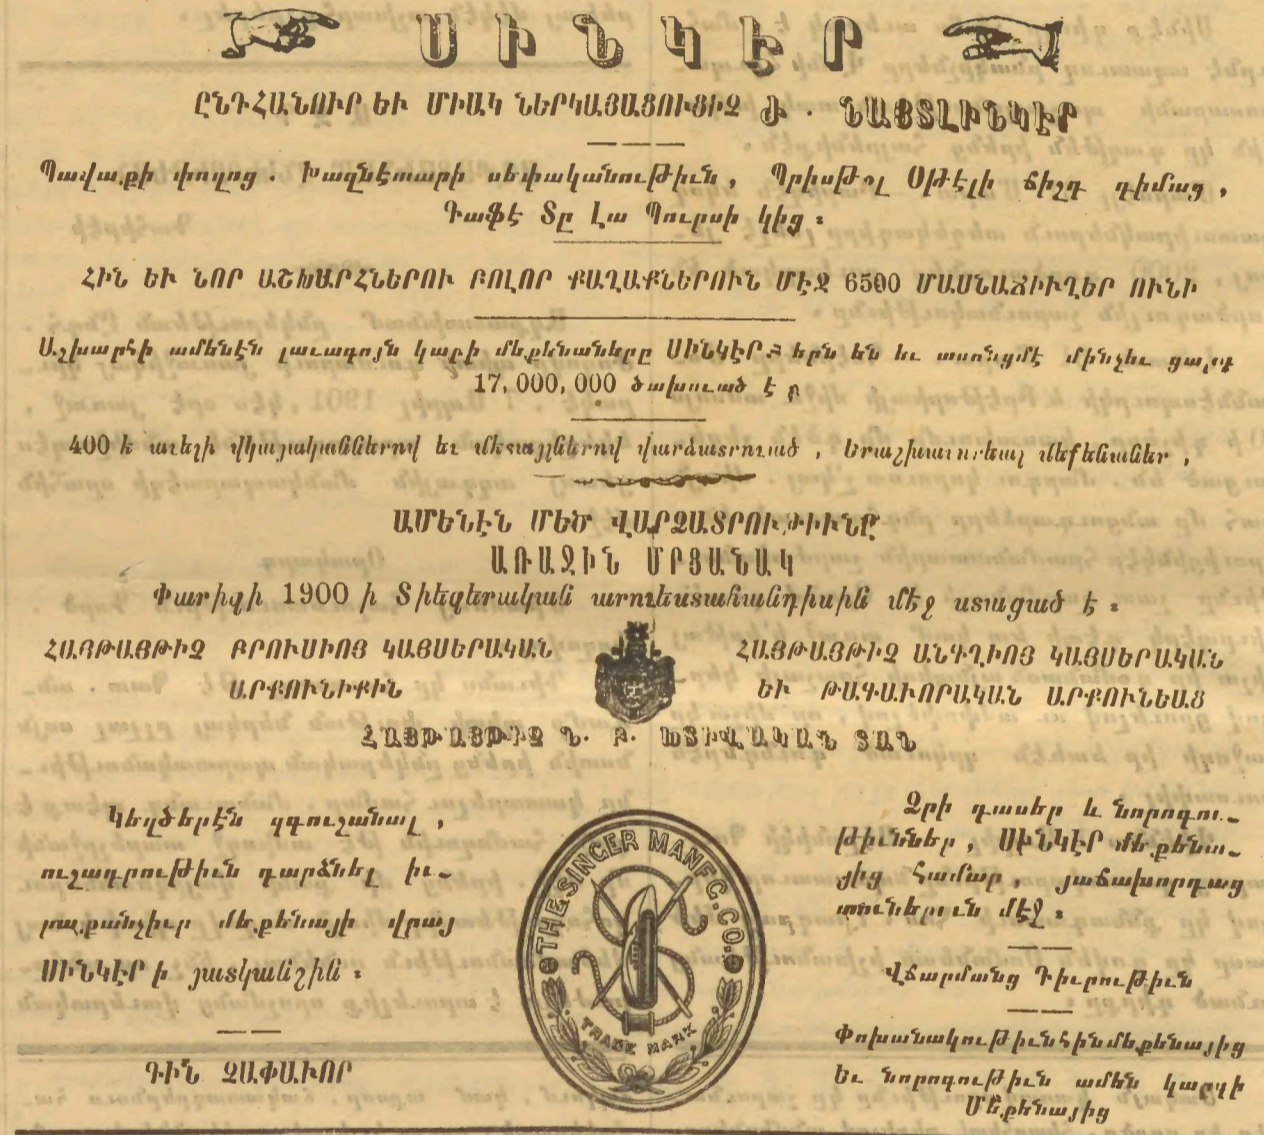 ՍԻՆԿԷՐ
ԸՆԴՀԱՆՈՒՐ ԵՒ ՄԻԱԿ ՆԵՐԿԱՅԱՑՈՒՑԻՉ Ժ . ՆԱՅՏԼԻՆԿԷՐ
Պավաքի փողոց . Խազնէտարի սեփականութիւն , Պրիսթօլ Օթէլի ճիշդ դիմաց ,
Գաֆէ Տը Լա Պուրսի կից ։
ՀԻՆ ԵՒ ՆՈՐ ԱՇԽԱՐՀՆԵՐՈՒ ԲՈԼՈՐ ՔԱՂԱՔՆԵՐՈՒՆ ՄԷՋ 6500 ՄԱՍՆԱՃԻՒՂԵՐ ՈՒՆԻ
Աշխարհի ամենէն լաւագոյն կարի մեքենաները ՍԻՆԿԷՐներն են եւ ասոնցմէ մինչեւ ցարդ
17,000,000 ծախուած է ր
400 է աւելի վկայականներով եւ մետալներով վարձատրուած , Երաշխաւորեալ մեքենաներ ,
ԱՄԵՆԷՆ ՄԵԾ ՎԱՐՁԱՏՐՈՒԹԻՒՆԸ
ԱՌԱՋԻՆ ՄՐՑԱՆԱԿ
Փարիզի 1900 ի Տիեզերական արուեստահանդիսին մէջ ստացած է ։
ՀԱՅԹԱՅԹԻՉ ԲՐՈՒՍԻՈՅ ԿԱՅՍԵՐԱԿԱՆ
ԱՐՔՈՒՆԻՔԻՆ
ՀԱՅԹԱՅԹԻՉ ԱՆԳՂԻՈՅ ԿԱՅՍԵՐԱԿԱՆ
ԵՒ ԹԱԳԱՒՈՐԱԿԱՆ ԱՐՔՈՒՆԵԱՑ
ՀԱՅԹԱՅԹԻՉ Ն. Բ. ԽՏԻՎԱԿԱՆ ՏԱՆ
Կեղծերէն զգուշանալ ,
ուշադրութիւն դարձնել իւ-
րաքանչիւր մեքենայի վրայ
ՍԻՆԿԷՐ ի յատկանշին ։
ԳԻՆ ՉԱՓԱՒՈՐ
THE SINGER MANFG. CO.
TRADE MARK
Ձրի դասեր և նորոգու-
թիւններ , ՍԻՆԿԷՐ մեքենա-
յից համար , յաճախորդաց
տուներուն մէջ ։
Վճարմանց Դիւրութիւն
Փոխանակութիւն հին մեքենայից
Եւ նորոգութիւն ամեն կարգի
Մեքենայից